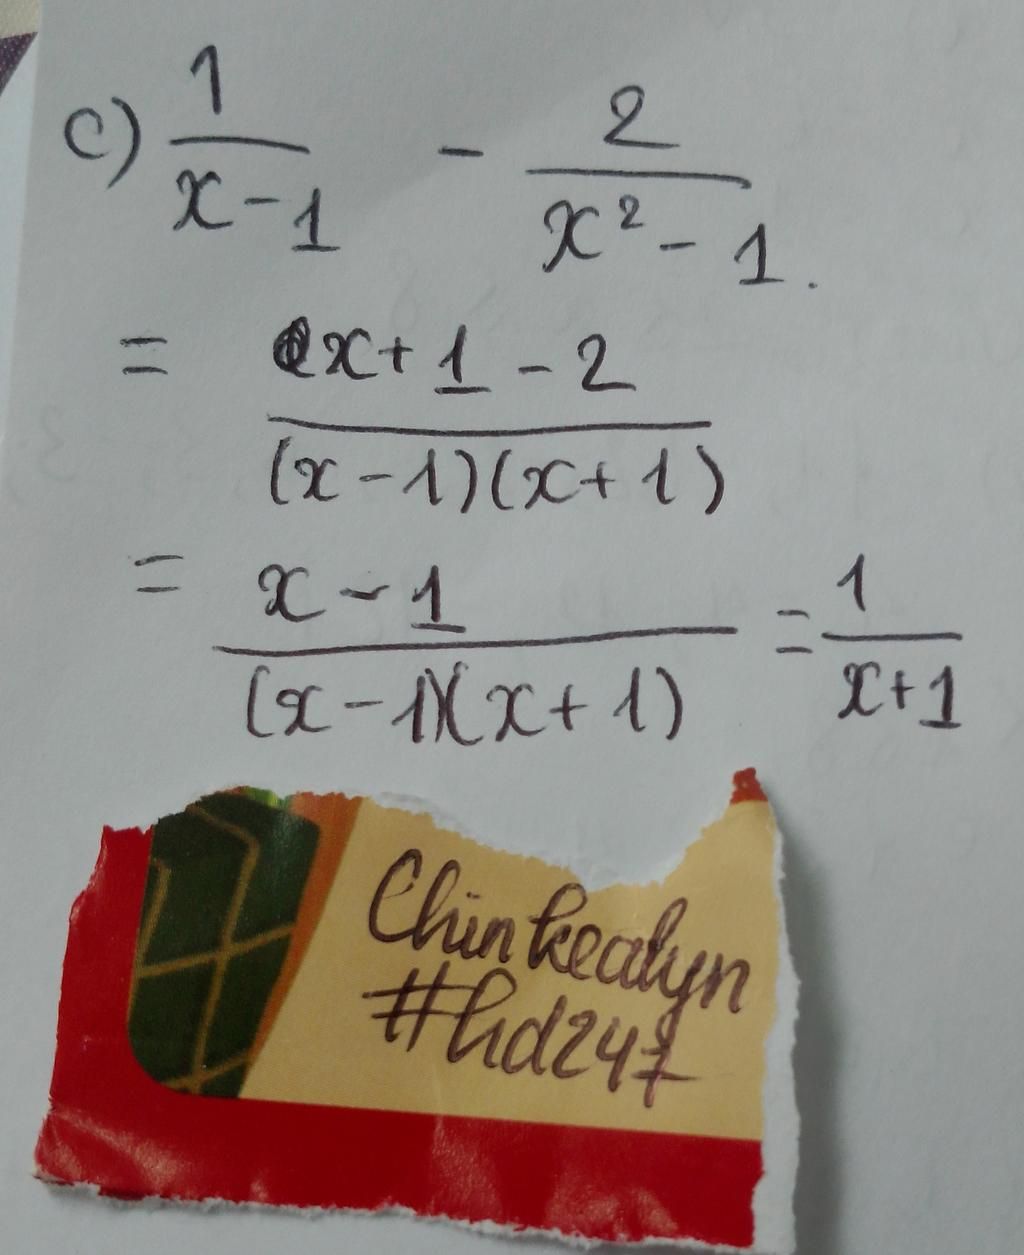 c) 1/(x-1) - 2/(x²-1).
= (x+1-2)/((x-1)(x+1))
= (x-1)/((x-1)(x+1)) = 1/(x+1)
Chinkealyn
#hd247